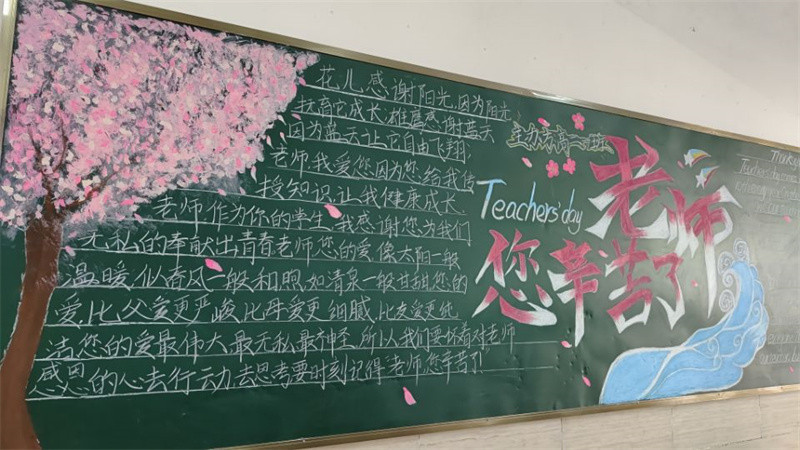 花儿感谢阳光,因为阳光
抚育它成长,雄鹰感谢蓝天
因为蓝天让它自由飞翔
老师我爱您因为您给我传
授知识,让我健康成长.
老师作为你的学生,我感谢您为我们
无私的奉献出青春老师您的爱,像太阳一般
温暖,似春风一般和煦,如清泉一般甘甜,您的
爱,比父爱更严峻,比母爱更细腻,比友爱更纯
洁,您的爱最伟大,最无私,最神圣,所以我们要怀着对老师
感恩的心去行动,去思考要时刻记得"老师,您辛苦了"
Teachers' day
老师
您辛苦了